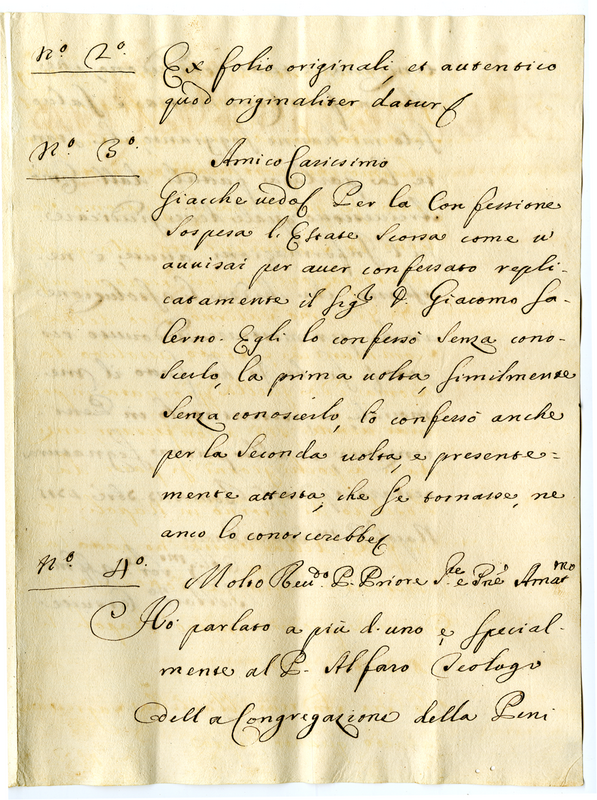 N.º 2º.
Ex folio originali et autentico
quod originaliter datur
N.º 3º.
Amico Carissimo
Giacche vedo Per la Confessione
Sospesa l'Estate Scorsa come v'
avvisai per aver confessato repli-
catamente il Sigr D. Giacomo Sa-
lerno. Egli lo confessò Senza cono-
Scerlo, la prima volta, Similmente
Senza conoscerlo, lo confessò anche
per la Seconda volta, e presente=
mente attesta, che Se tornasse, ne
anco lo conoscerebbe
N.º 4º.
Molto Reudo. P. Priore Sre e Pne Amatmo
Hò parlato a più d'uno e, Special-
mente al P. Alfaro Teologo
della Congregazione della Peni